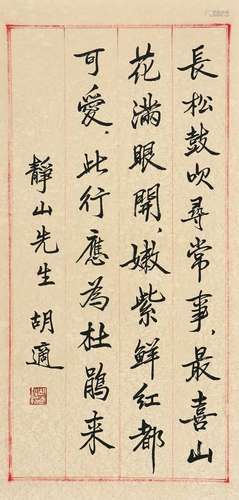 長松鼓吹尋常事、最喜山
花滿眼開、嫩紫鮮紅都
可愛、此行應為杜鵑来
靜山先生 胡適